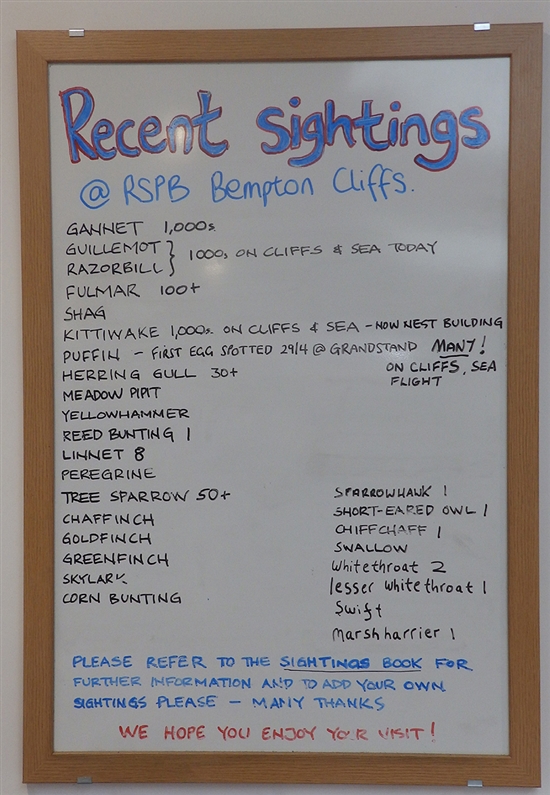 Recent sightings
@ RSPB Bempton Cliffs.
GANNET 1,000s
GUILLEMOT } 1000s ON CLIFFS & SEA TODAY
RAZORBILL
FULMAR 100+
SHAG
KITTIWAKE 1,000s ON CLIFFS & SEA - NOW NEST BUILDING
PUFFIN - FIRST EGG SPOTTED 29/4 @ GRANDSTAND MANY!
ON CLIFFS, SEA
FLIGHT
HERRING GULL 30+
MEADOW PIPIT
YELLOWHAMMER
REED BUNTING 1
LINNET 8
PEREGRINE
TREE SPARROW 50+
CHAFFINCH
GOLDFINCH
GREENFINCH
SKYLARK
CORN BUNTING
SPARROWHAWK 1
SHORT-EARED OWL 1
CHIFFCHAFF 1
SWALLOW
Whitethroat 2
lesser whitethroat 1
Swift
Marsh harrier 1
PLEASE REFER TO THE SIGHTINGS BOOK FOR
FURTHER INFORMATION AND TO ADD YOUR OWN
SIGHTINGS PLEASE - MANY THANKS
WE HOPE YOU ENJOY YOUR VISIT!